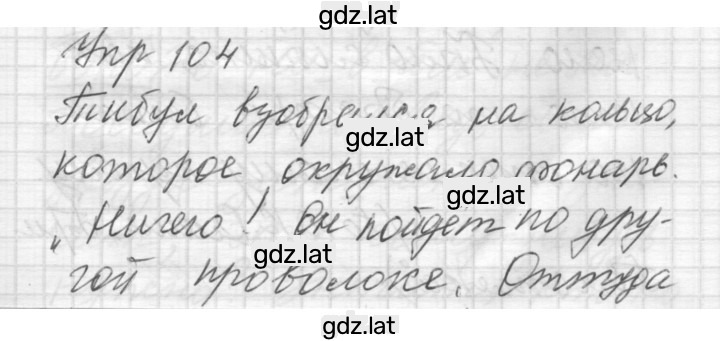 gdz.lat
Упр 104
Тибул взобрался на кольцо,
gdz.lat
которое окружало фонарь.
gdz.lat
„Ничего! Он пойдет по дру-
gdz.lat
гой проволоке. Оттуда
gdz.lat